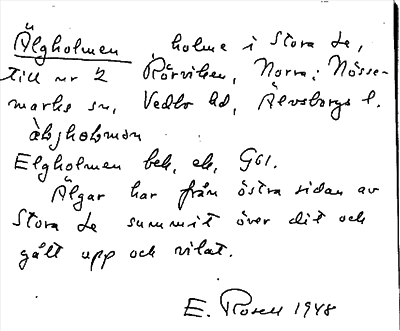 Älgholmen holme i Stora Le,
till nr 2 Rörviken, Norra; Nösse-
marks sn, Vedbo hd, Älvsborgs l.
Elgholmen bek, ek, G61.
Älgar har från östra sidan av
Stora Le summit över dit och
gått upp och vilat.
E. Rosell 1948